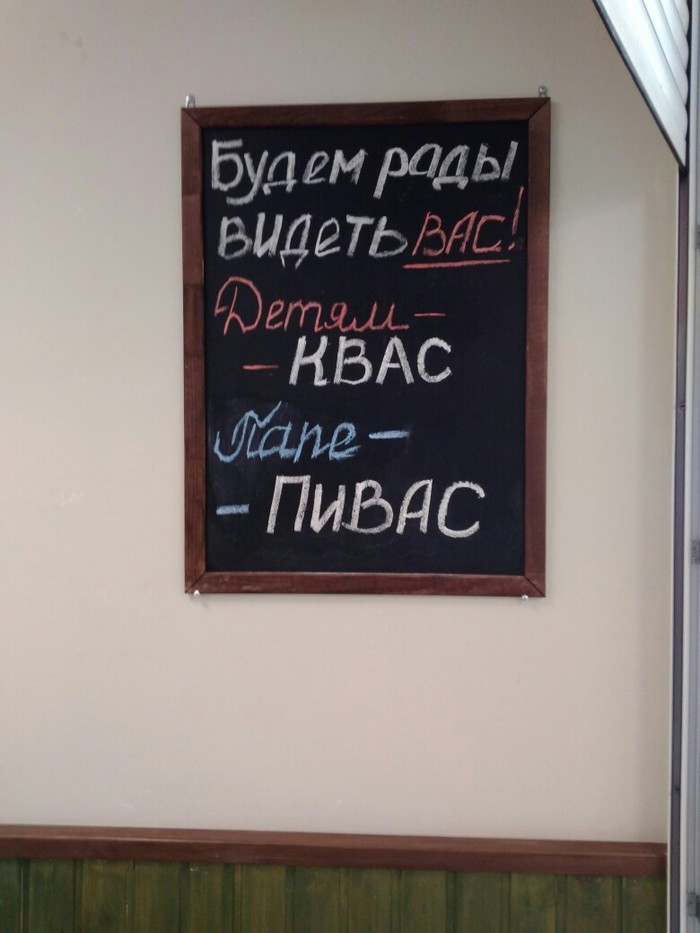 Будем рады
видеть ВАС!
Детям –
– КВАС
Папе –
– ПиВАС